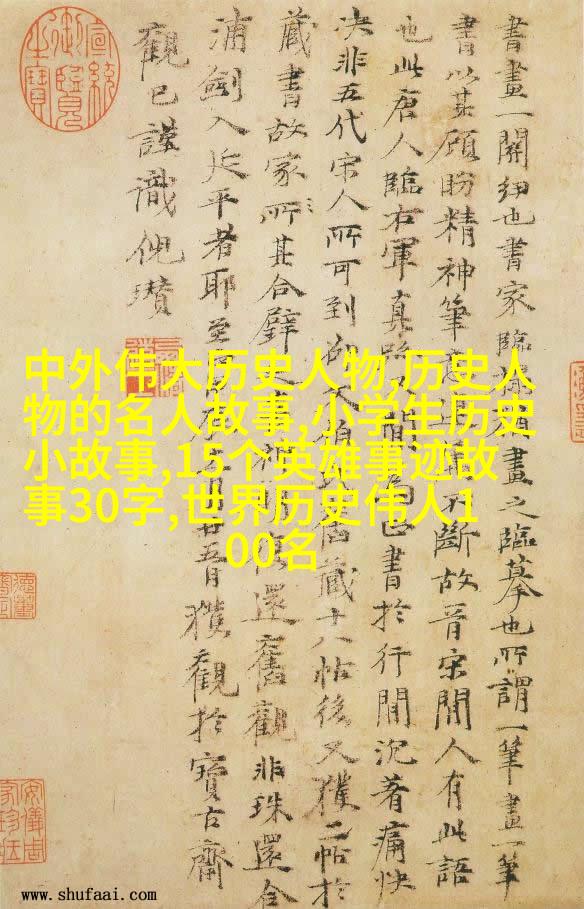 宣統
御覽
之寶
書畫一關紐也書家臨猶畫之臨摹也所謂一筆畫一筆
書以其顧盼精神筆不斷故晉宋間人有此語
也此唐人臨右軍真又間為正書於行間沉著痛快
決非五代宋人所可到卻又舊藏十八帖後又獲二帖於
藏書故家所其合璧神明還舊觀非珠還合
浦劍入延平者耶至廿五日獲觀於寶古齋
觀已謹識倪瓚
中外伟大历史人物,历史人
物的名人故事,小学生历史
小故事,15个英雄事迹故
事30字,世界历史伟人1
00名
www.shufaai.com